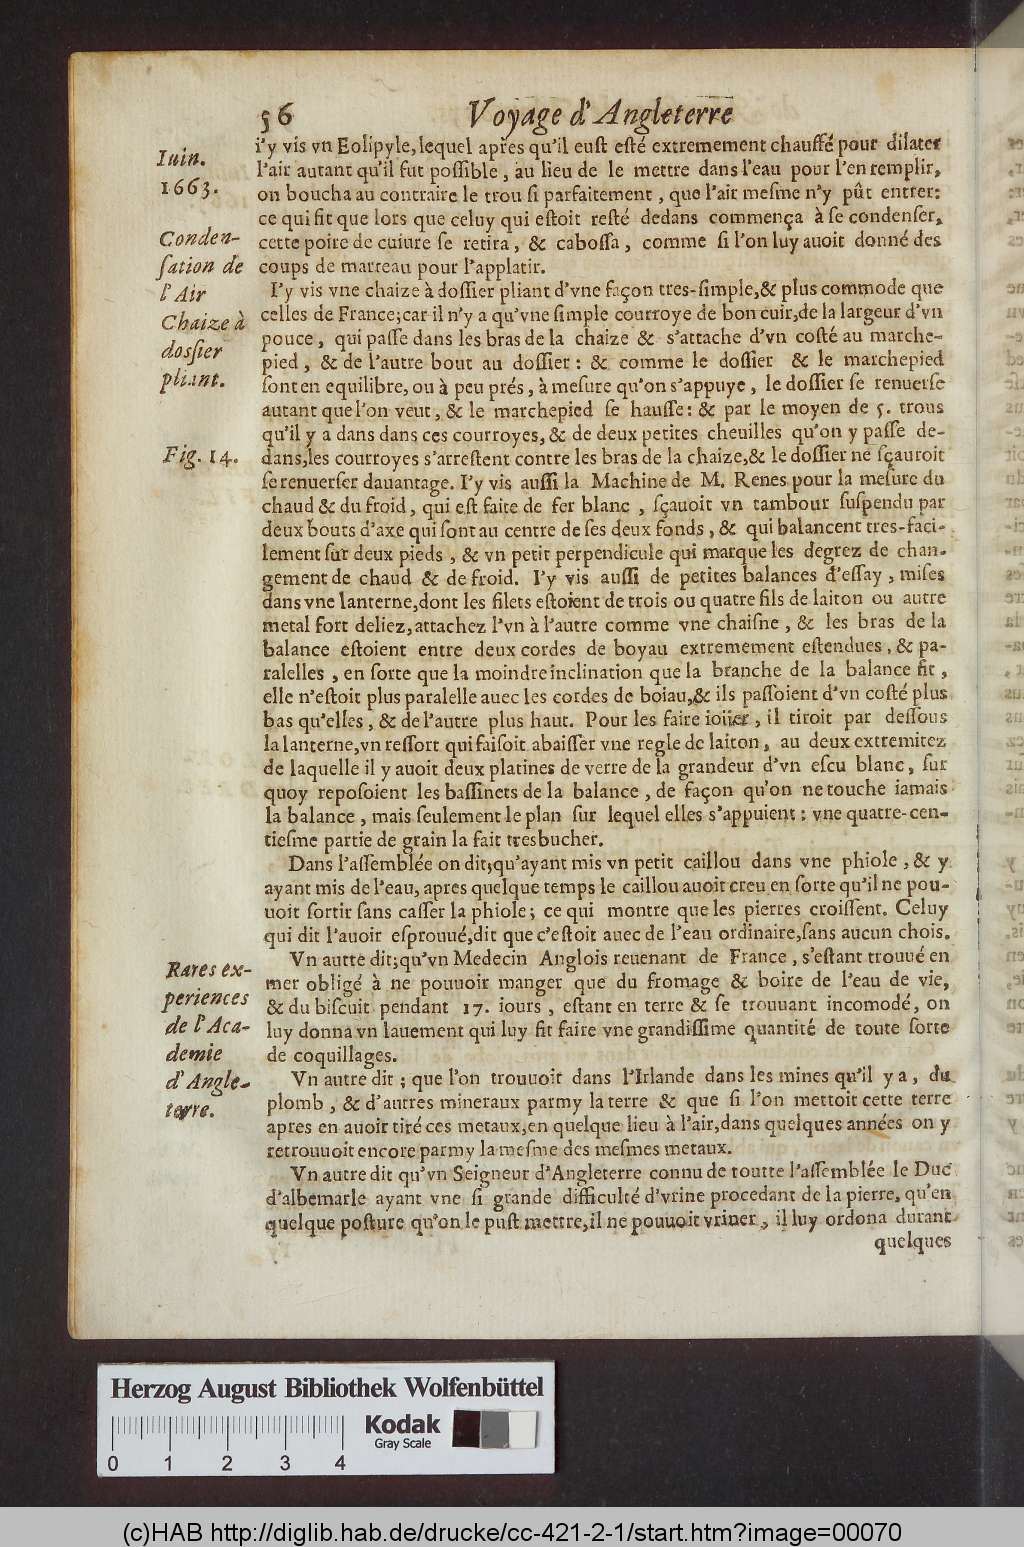 56 Voyage d'Angleterre
Iuin.
1663.
Conden-
ſation de
l'Air
Chaize à
doſsier
pliant.
Fig. 14.
Rares ex-
periences
de l'Aca-
demie
d'Angle-
terre.
i'y vis vn Eolipyle, lequel apres qu'il euſt eſté extremement chauffé pour dilater
l'air autant qu'il fut poſſible, au lieu de le mettre dans l'eau pour l'en remplir,
on boucha au contraire le trou ſi parfaitement, que l'air meſme n'y pût entrer:
ce qui fit que lors que celuy qui eſtoit reſté dedans commença à ſe condenſer,
cette poire de cuiure ſe retira, & caboſſa, comme ſi l'on luy auoit donné des
coups de marteau pour l'applatir.
I'y vis vne chaize à doſſier pliant d'vne façon tres-ſimple, & plus commode que
celles de France; car il n'y a qu'vne ſimple courroye de bon cuir, de la largeur d'vn
pouce, qui paſſe dans les bras de la chaize & s'attache d'vn coſté au marche-
pied, & de l'autre bout au doſſier: & comme le doſſier & le marchepied
ſont en equilibre, ou à peu prés, à meſure qu'on s'appuye, le doſſier ſe renuerſe
autant que l'on veut, & le marchepied ſe hauſſe: & par le moyen de 5. trous
qu'il y a dans dans ces courroyes, & de deux petites cheuilles qu'on y paſſe de-
dans, les courroyes s'arreſtent contre les bras de la chaize, & le doſſier ne ſçauroit
ſe renuerſer dauantage. I'y vis auſſi la Machine de M. Renes pour la meſure du
chaud & du froid, qui eſt faite de fer blanc, ſçauoit vn tambour ſuſpendu par
deux bouts d'axe qui ſont au centre de ſes deux fonds, & qui balancent tres-faci-
lement ſur deux pieds, & vn petit perpendicule qui marque les degrez de chan-
gement de chaud & de froid. I'y vis auſſi de petites balances d'eſſay, miſes
dans vne lanterne, dont les filets eſtoient de trois ou quatre fils de laiton ou autre
metal fort deliez, attachez l'vn à l'autre comme vne chaiſne, & les bras de la
balance eſtoient entre deux cordes de boyau extremement eſtendues, & pa-
ralelles, en ſorte que la moindre inclination que la branche de la balance fit,
elle n'eſtoit plus paralelle auec les cordes de boiau, & ils paſſoient d'vn coſté plus
bas qu'elles, & de l'autre plus haut. Pour les faire ioüer, il tiroit par deſſous
la lanterne, vn reſſort qui faiſoit abaiſſer vne regle de laiton, au deux extremitez
de laquelle il y auoit deux platines de verre de la grandeur d'vn eſcu blanc, ſur
quoy repoſoient les baſſinets de la balance, de façon qu'on ne touche iamais
la balance, mais ſeulement le plan ſur lequel elles s'appuient: vne quatre-cen-
tieſme partie de grain la fait tresbucher.
Dans l'aſſemblée on dit; qu'ayant mis vn petit caillou dans vne phiole, & y
ayant mis de l'eau, apres quelque temps le caillou auoit creu en ſorte qu'il ne pou-
uoit ſortir ſans caſſer la phiole; ce qui montre que les pierres croiſſent. Celuy
qui dit l'auoir eſprouué, dit que c'eſtoit auec de l'eau ordinaire, ſans aucun chois.
Vn autre dit; qu'vn Medecin Anglois reuenant de France, s'eſtant trouué en
mer obligé à ne pouuoir manger que du fromage & boire de l'eau de vie,
& du biſcuit pendant 17. iours, eſtant en terre & ſe trouuant incomodé, on
luy donna vn lauement qui luy fit faire vne grandiſſime quantité de toute ſorte
de coquillages.
Vn autre dit; que l'on trouuoit dans l'Irlande dans les mines qu'il y a, du
plomb, & d'autres mineraux parmy la terre & que ſi l'on mettoit cette terre
apres en auoir tiré ces metaux, en quelque lieu à l'air, dans quelques années on y
retrouuoit encore parmy la meſme des meſmes metaux.
Vn autre dit qu'vn Seigneur d'Angleterre connu de toutte l'aſſemblée le Duc
d'albemarle ayant vne ſi grande difficulté d'vrine procedant de la pierre, qu'en
quelque poſture qu'on le puſt mettre, il ne pouuoit vriner, il luy ordona durant
quelques
Herzog August Bibliothek Wolfenbüttel
Kodak
Gray Scale
0 1 2 3 4
(c)HAB http://diglib.hab.de/drucke/cc-421-2-1/start.htm?image=00070